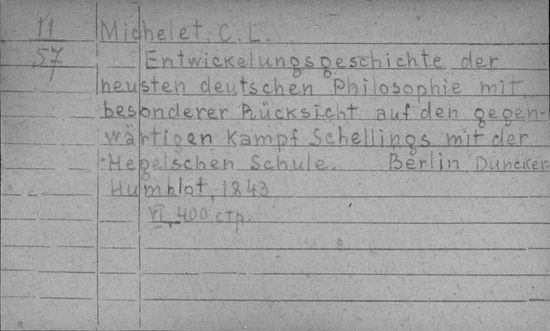 11 Michelet, C. L.
57 Entwickelungsgeschichte der
neusten deutschen Philosophie mit
besonderer Rücksicht auf den gegen-
wärtigen Kampf Schellings mit der
Hegelschen Schule. Berlin Duncker
Humblot, 1843
VI, 400 стр.